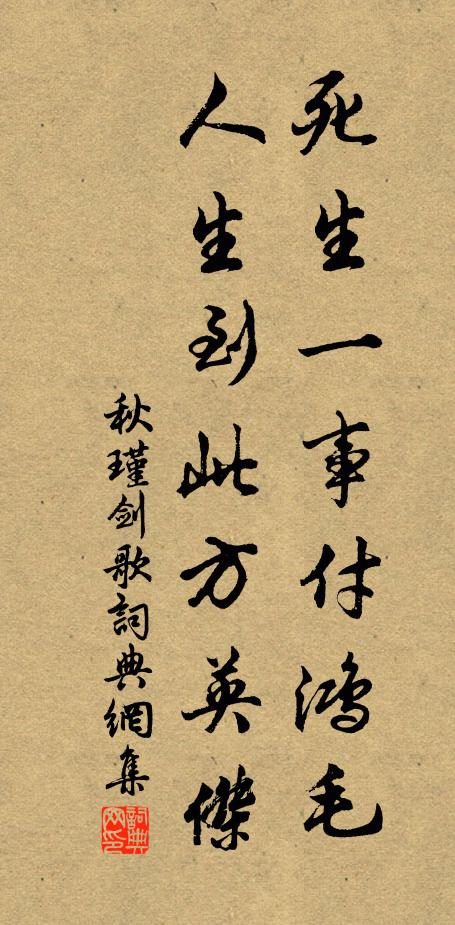 死生一事付鸿毛
人生到此方英傑
秋瑾劍歌詞典網集
詞典网印